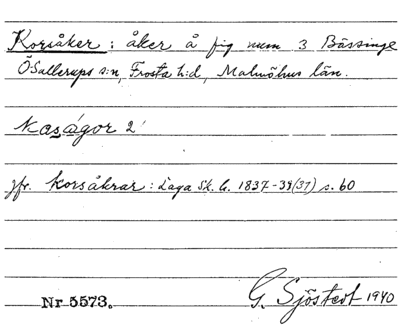 Korsåker : åker å fig num 3 Bässinge
Ö Sallerups s:n, Frosta h:d, Malmöhus län.
kasågor 2
jfr. korsåkrar : Laga Sk. h. 1837-39(37) s. 60
Nr 5573. G. Sjöstedt 1940